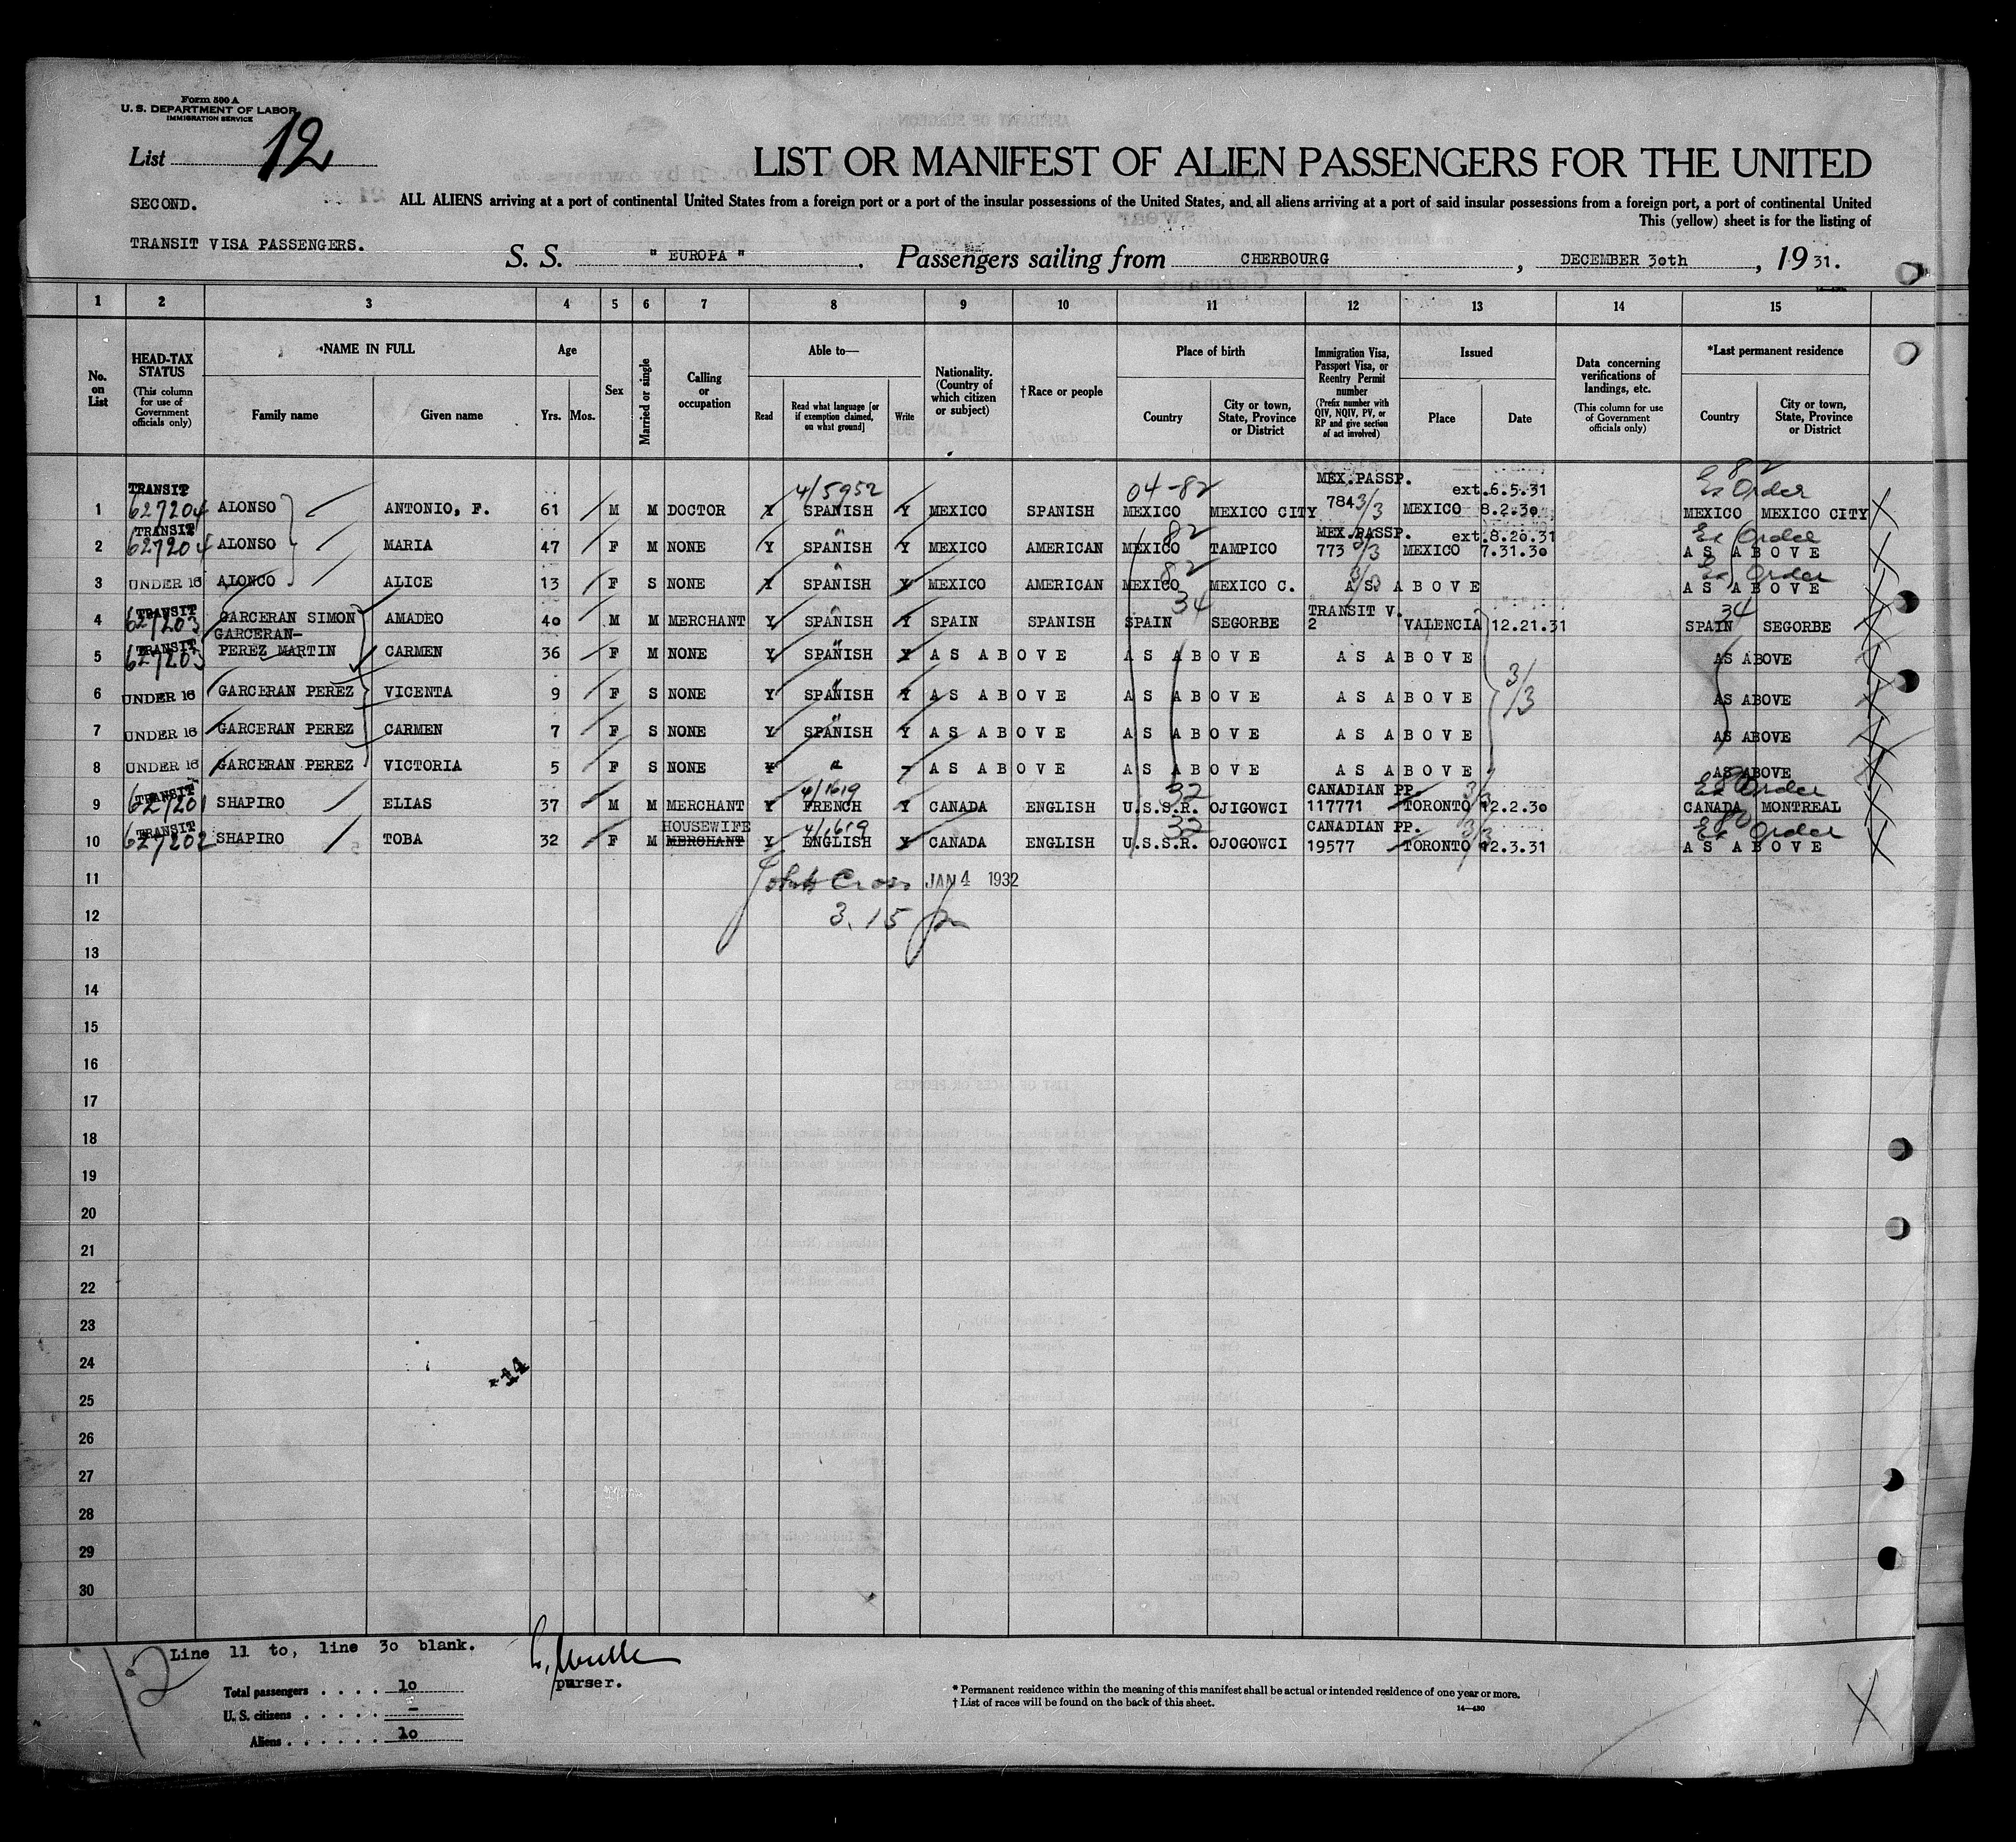 Form 500 A
U. S. DEPARTMENT OF LABOR
IMMIGRATION SERVICE
List 12
LIST OR MANIFEST OF ALIEN PASSENGERS FOR THE UNITED
SECOND.
ALL ALIENS arriving at a port of continental United States from a foreign port or a port of the insular possessions of the United States, and all aliens arriving at a port of said insular possessions from a foreign port, a port of continental United
This (yellow) sheet is for the listing of
TRANSIT VISA PASSENGERS.
S. S. " EUROPA " . Passengers sailing from CHERBOURG , DECEMBER 30th , 19 31.
1 2 3 4 5 6 7 8 9 10 11 12 13 14 15
No. on List
HEAD-TAX STATUS (This column for use of Government officials only)
NAME IN FULL Family name Given name
Age Yrs. Mos.
Sex
Married or single
Calling or occupation
Able to— Read Read what language [or if exemption claimed, on what ground] Write
Nationality. (Country of which citizen or subject)
† Race or people
Place of birth Country City or town, State, Province or District
Immigration Visa, Passport Visa, or Reentry Permit number (Prefix number with QIV, NQIV, PV, or RP and give section of act involved)
Issued Place Date
Data concerning verifications of landings, etc. (This column for use of Government officials only)
*Last permanent residence Country City or town, State, Province or District
TRANSIT 4/5952 04-82 MEX.PASSP. ext.6.5.31 82 Ex Order
1 627204 ALONSO ANTONIO, F. 61 M M DOCTOR Y SPANISH Y MEXICO SPANISH MEXICO MEXICO CITY 7843 3/3 MEXICO 8.2.30 MEXICO MEXICO CITY
TRANSIT " 82 MEX.PASSP. ext.8.20.31 Ex Order
2 627204 ALONSO MARIA 47 F M NONE Y SPANISH Y MEXICO AMERICAN MEXICO TAMPICO 773 3/3 MEXICO 7.31.30 AS ABOVE
" 82 Ex Order
3 UNDER 16 ALONCO ALICE 13 F S NONE Y SPANISH Y MEXICO AMERICAN MEXICO MEXICO C. AS ABOVE AS ABOVE
TRANSIT " 34 TRANSIT V. 34
4 627203 GARCERAN SIMON AMADEO 40 M M MERCHANT Y SPANISH Y SPAIN SPANISH SPAIN SEGORBE 2 VALENCIA 12.21.31 SPAIN SEGORBE
TRANSIT GARCERAN-
5 627203 PEREZ MARTIN CARMEN 36 F M NONE Y SPANISH Y AS ABOVE AS ABOVE AS ABOVE AS ABOVE
6 UNDER 16 GARCERAN PEREZ VICENTA 9 F S NONE Y SPANISH Y AS ABOVE AS ABOVE AS ABOVE 3/3 AS ABOVE
7 UNDER 16 GARCERAN PEREZ CARMEN 7 F S NONE Y SPANISH Y AS ABOVE AS ABOVE AS ABOVE AS ABOVE
8 UNDER 16 GARCERAN PEREZ VICTORIA 5 F S NONE Y " - AS ABOVE AS ABOVE AS ABOVE AS ABOVE
TRANSIT 4/1619 32 CANADIAN PP. 3/3 Ex Order
9 627201 SHAPIRO ELIAS 37 M M MERCHANT Y FRENCH Y CANADA ENGLISH U.S.S.R. OJIGOWCI 117771 TORONTO 12.2.30 CANADA MONTREAL
TRANSIT HOUSEWIFE 4/1619 32 CANADIAN PP. 3/3 80 Ex Order
10 627202 SHAPIRO TOBA 32 F M MERCHANT Y ENGLISH Y CANADA ENGLISH U.S.S.R. OJOGOWCI 19577 TORONTO 12.3.31 AS ABOVE
11 John Cross JAN 4 1932
12 3.15
13
14
15
16
17
18
19
20
21
22
23
24
-14
25
26
27
28
29
30
12
Line 11 to, line 30 blank.
purser.
Total passengers . . . . 10
U. S. citizens . . . . . -
Aliens . . . . . . 10
* Permanent residence within the meaning of this manifest shall be actual or intended residence of one year or more.
† List of races will be found on the back of this sheet.
14—430